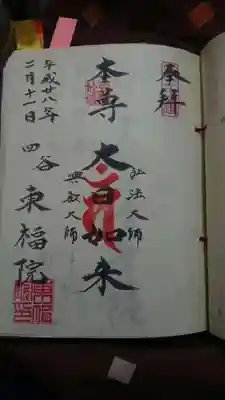 奉拝
本尊
弘法大師
大日如来
興教大師
四谷 東福院
平成廿八年
二月十一日